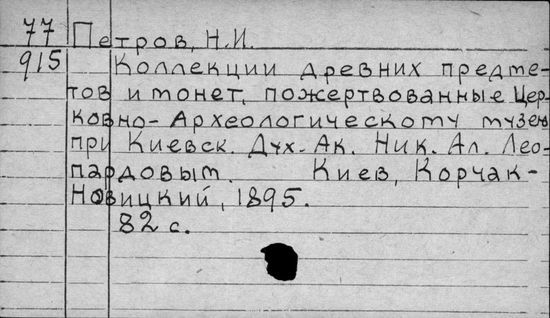 77 Петров, Н.И.
915 Коллекции древних предме-
тов и монет, пожертвованные Цер-
ковно-Археологическому музею
при Киевск. Дух. Ак. Ник. Ал. Лео-
пардовым. Киев, Корчак-
Новицкий, 1895.
82 с.